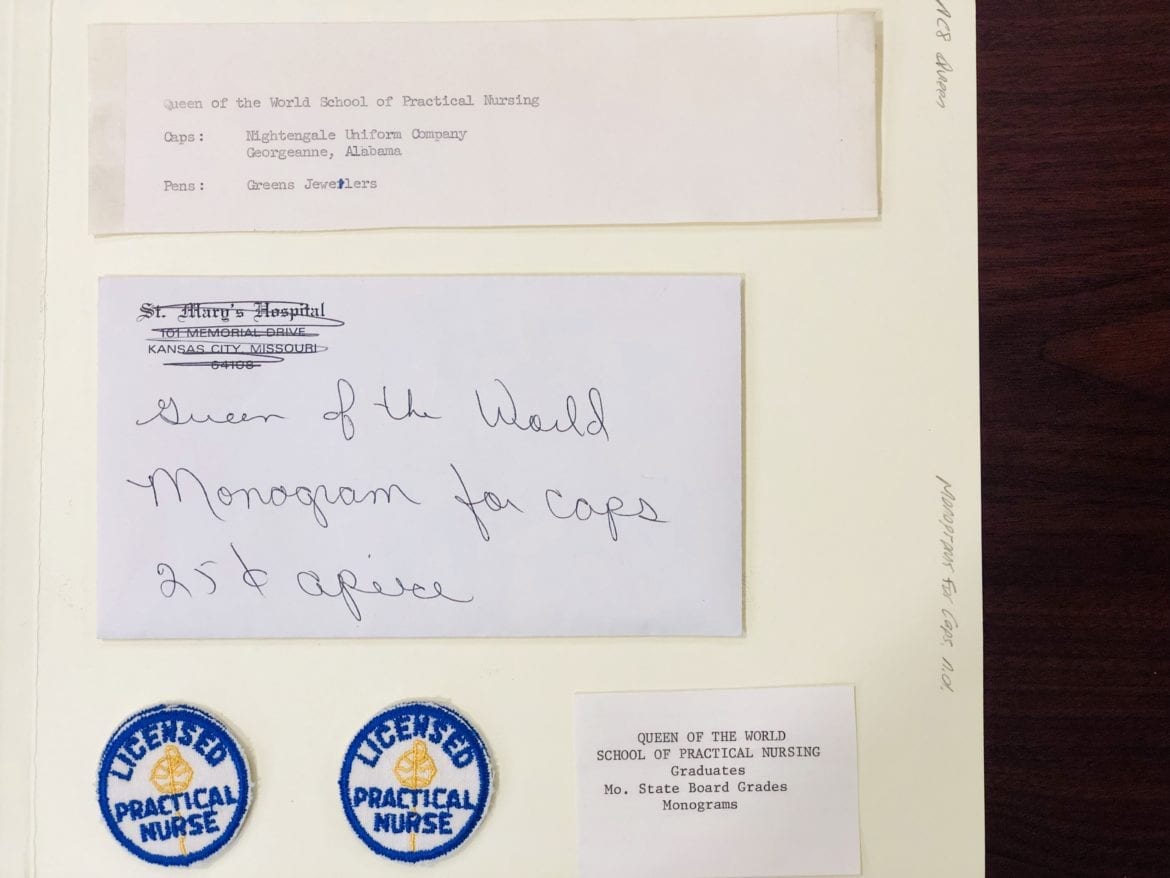 Queen of the World School of Practical Nursing
Caps: Nightengale Uniform Company
Georgeanne, Alabama
Pens: Greens Jewetlers
St. Mary's Hospital
101 MEMORIAL DRIVE
KANSAS CITY, MISSOURI
64108
Queen of the World
Monogram for caps
25¢ apiece
LICENSED
PRACTICAL
NURSE
LICENSED
PRACTICAL
NURSE
QUEEN OF THE WORLD
SCHOOL OF PRACTICAL NURSING
Graduates
Mo. State Board Grades
Monograms
For Caps.